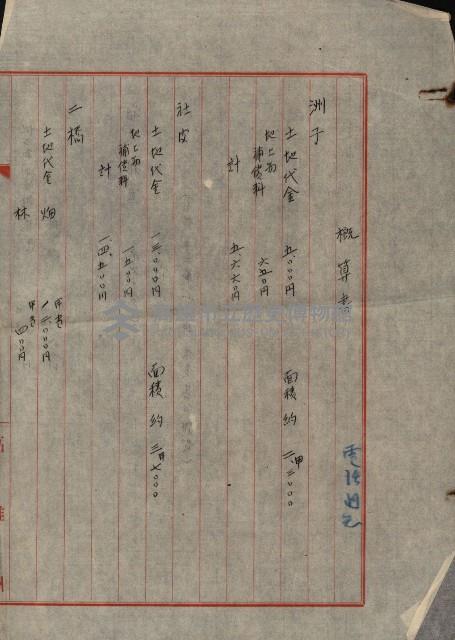 概算書
洲子
土地代金 五.〇〇〇円 面積約 二甲三〇〇〇
地上物補償料 六五〇円
計 五.六六〇円
社皮
土地代金 一三.〇〇〇円 面積約 三甲七〇〇〇
地上物補償料 一.五〇〇円
計 一四.五〇〇円
二橋
土地代金 畑 甲当 一.三〇〇〇円
林 甲当 四〇〇円
高雄州
高雄市立歷史博物館